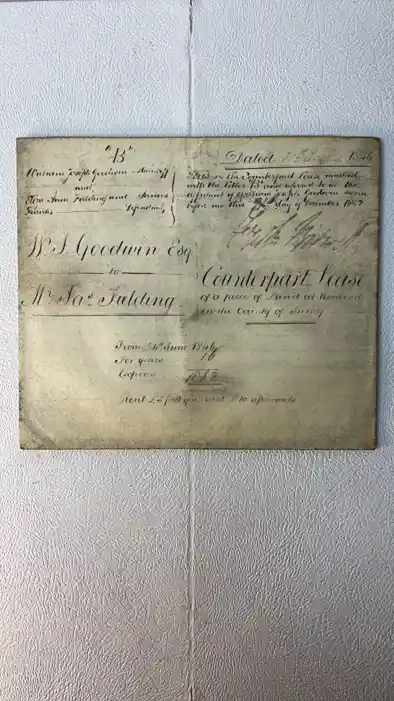 "B"
William Joseph Goodwin Plaintiff
and
Ann Fielding and
Defendants
Dated 1846
This is the Counterpart Lease marked
with the letter "B" and referred to in the
affidavit of William Joseph Goodwin sworn
before me this day of December 1867
W. J. Goodwin Esq
to
Mr. Jas. Fielding
Counterpart Lease
of a piece of Land at Norwood
in the County of Surry
From 24th June 1846
For years
Expires 1882
Rent £5 first year and £10 afterwards